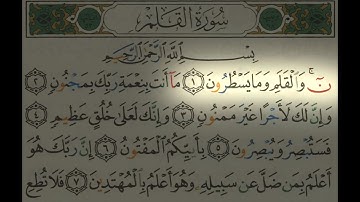 سُورَةُ الْقَلَمِ
بِسْمِ اللَّهِ الرَّحْمَٰنِ الرَّحِيمِ
نٓ ۚ وَالْقَلَمِ وَمَا يَسْطُرُونَ ﴿١﴾ مَا أَنتَ بِنِعْمَةِ رَبِّكَ بِمَجْنُونٍ ﴿٢﴾
وَإِنَّ لَكَ لَأَجْرًا غَيْرَ مَمْنُونٍ ﴿٣﴾ وَإِنَّكَ لَعَلَىٰ خُلُقٍ عَظِيمٍ ﴿٤﴾
فَسَتُبْصِرُ وَيُبْصِرُونَ ﴿٥﴾ بِأَييِّكُمُ الْمَفْتُونُ ﴿٦﴾ إِنَّ رَبَّكَ هُوَ
أَعْلَمُ بِمَن ضَلَّ عَن سَبِيلِهِ وَهُوَ أَعْلَمُ بِالْمُهْتَدِينَ ﴿٧﴾ فَلَا تُطِعِ